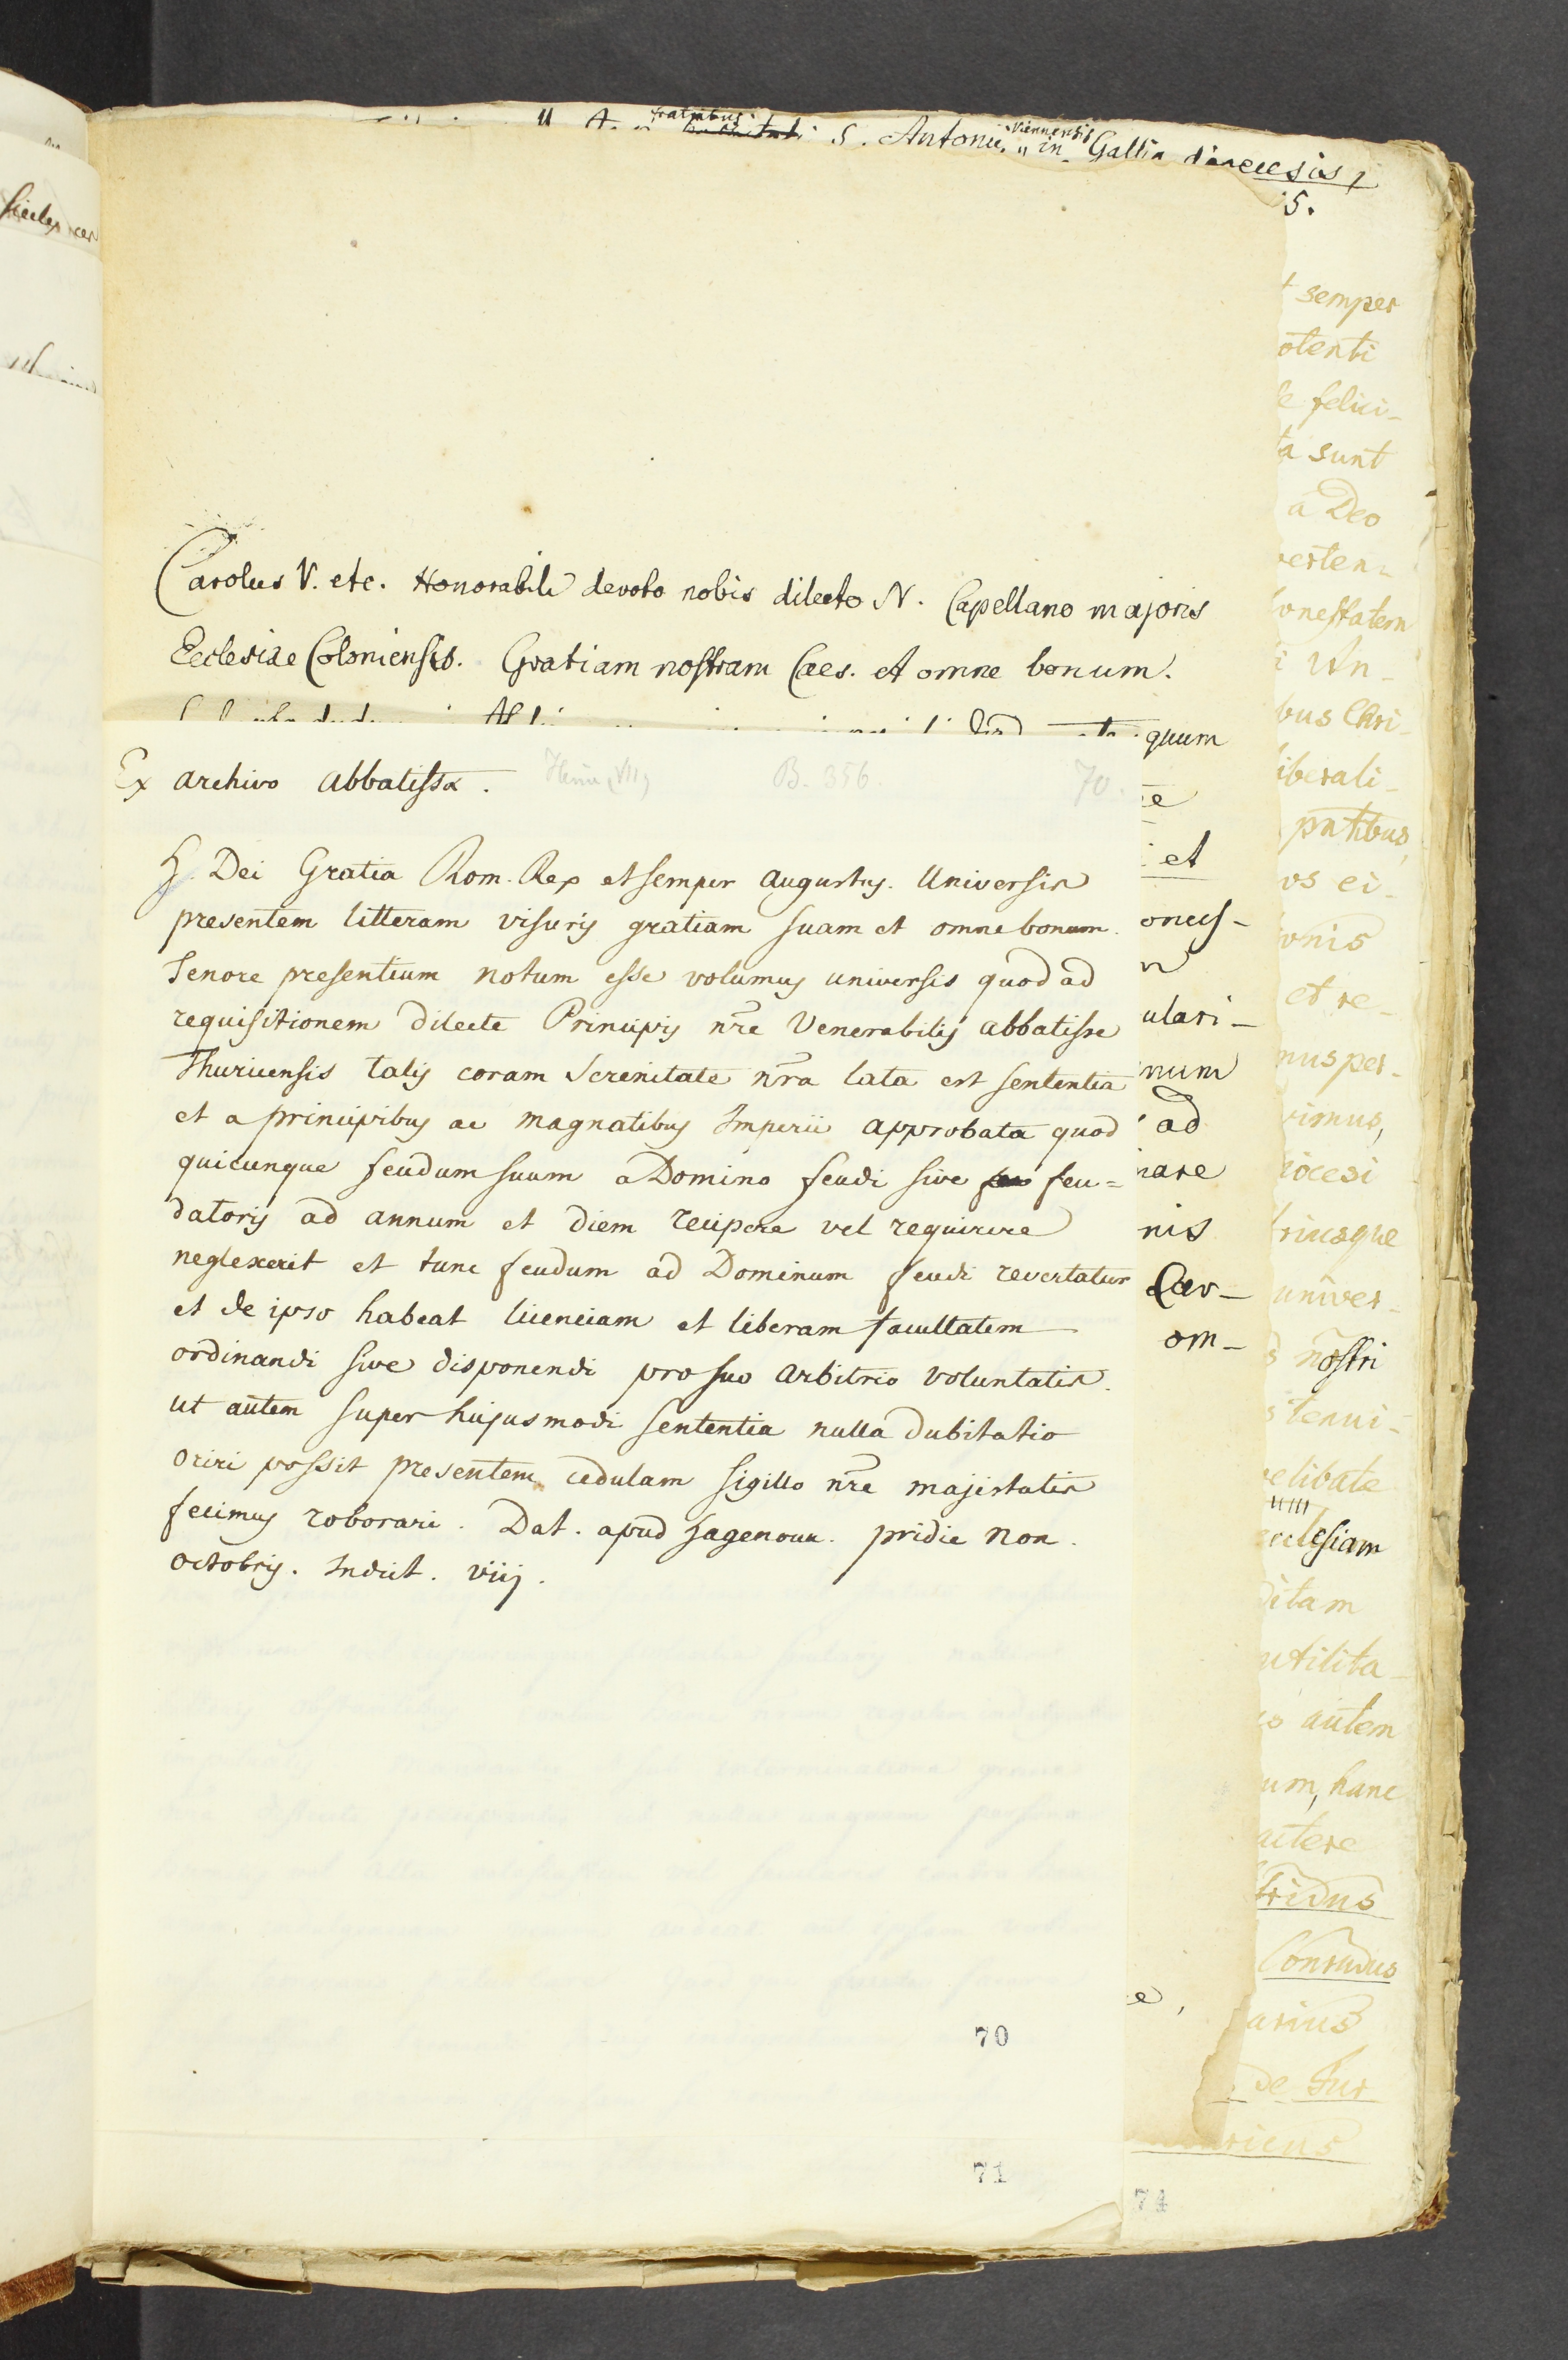 fratribus
S. Antonii, in Viennensis Gallia dioecesis,
5.
Carolus V. etc. Honorabili devoto nobis dilecto N. Capellano majoris
Ecclesiae Coloniensis. Gratiam nostram Caes. et omne bonum.
quum
Ex archivo abbatissæ. B. 356. 70.
H. Dei Gratia Rom. Rex et semper Augustus. Universis
presentem litteram visuris gratiam suam et omne bonum.
Tenore presentium notum esse volumus universis quod ad
requisitionem dilecte Principis nr̃e Venerabilis abbatisse
Thuricensis talis coram Serenitate nr̃a lata est sententia
et a principibus ac magnatibus Imperii approbata quod
quicunque feudum suum a Domino feudi sive feu=
datoris ad annum et diem recipere vel requirere
neglexerit et tunc feudum ad Dominum feudi revertatur
et de ipso habeat licenciam et liberam facultatem
ordinandi sive disponendi pro suo arbitrio voluntatis.
ut autem super hujusmodi sententia nulla dubitatio
oriri possit presentem cedulam sigillo nr̃e majestatis
fecimus roborari. Dat. apud Hagenoun. pridie Non.
octobris. Indict. viij.
et
oneus-
ulari-
num
ad
nare
nis
Cær-
om-
e,
semper
otenti
e felici-
ta sunt
a Deo
verten-
onestatem
i An-
bus Chri-
iberali-
pntibus,
os ei-
onis
et re-
nus per-
vimus,
iocesi
triusque
univer-
s nostri
s tenui-
elibate
ecclesiam
ditam
utilita-
autem
um, hanc
actere
fridus
Conradus
arius
de Tur
ricus
70
71
74